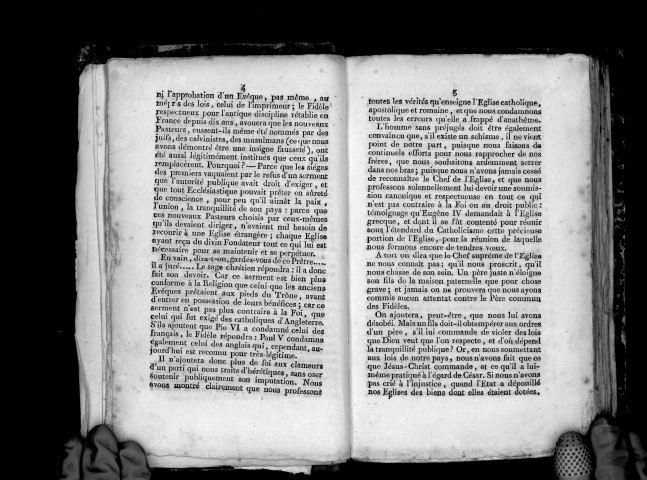 4
ni l'approbation d'un Evêque, pas même, au
mépris des lois, celui de l'imprimeur; le Fidèle
respectueux pour l'antique discipline rétablie en
France depuis dix ans, avouera que les nouveaux
Pasteurs, eussent-ils même été nommés par des
juifs, des calvinistes, des musulmans (ce que nous
avons démontré être une insigne fausseté), ont
été aussi légitimément institués que ceux qu'ils
remplacèrent. Pourquoi? — Parce que les siéges
des premiers vaquaient par le refus d'un serment
que l'autorité publique avait droit d'exiger, et
que tout Ecclésiastique pouvait prêter en sûreté
de conscience, pour peu qu'il aimât la paix,
l'union, la tranquillité de son pays: parce que
ces nouveaux Pasteurs choisis par ceux-mêmes
qu'ils devaient diriger, n'avaient nul besoin de
recourir à une Eglise étrangère; chaque Eglise
ayant reçu du divin Fondateur tout ce qui lui est
nécessaire pour se maintenir et se perpétuer.
En vain, dira-t-on, gardez-vous de ce Prêtre.....
il a juré..... Le sage chrétien répondra: il a donc
fait son devoir. Car ce serment est bien plus
conforme à la Religion que celui que les anciens
Evêques prêtaient aux pieds du Trône, avant
d'entrer en possession de leurs bénéfices; car ce
serment n'est pas plus contraire à la Foi, que
celui qui fut exigé des catholiques d'Angleterre.
S'ils ajoutent que Pie VI a condamné celui des
français, le Fidèle répondra: Paul V condamna
également celui des anglais qui, cependant, au-
jourd'hui est reconnu pour très-légitime.
Il n'ajoutera donc plus de foi aux clameurs
d'un parti qui nous traite d'hérétiques, sans oser
soutenir publiquement son imputation. Nous
avons montré clairement que nous professons
5
toutes les vérités qu'enseigne l'Eglise catholique,
apostolique et romaine, et que nous condamnons
toutes les erreurs qu'elle a frappé d'anathême.
L'homme sans préjugés doit être également
convaincu que, s'il existe un schisme, il ne vient
point de notre part, puisque nous faisons de
continuels efforts pour nous rapprocher de nos
frères, que nous souhaitons ardemment serrer
dans nos bras; puisque nous n'avons jamais cessé
de reconnaître le Chef de l'Eglise, et que nous
professons solennellement lui devoir une soumis-
sion canonique et respectueuse en tout ce qui
n'est pas contraire à la Foi ou au droit public:
témoignage qu'Eugène IV demandait à l'Eglise
grecque, et dont il se fût contenté pour réunir
sous l'étendard du Catholicisme cette précieuse
portion de l'Eglise, pour la réunion de laquelle
nous formons encore de tendres vœux.
A tort on dira que le Chef suprême de l'Eglise
ne nous connaît pas; qu'il nous proscrit, qu'il
nous chasse de son sein. Un père juste n'éloigne
son fils de la maison paternelle que pour chose
grave; et jamais on ne prouvera que nous ayons
commis aucun attentat contre le Père commun
des Fidèles.
On ajoutera, peut-être, que nous lui avons
désobéi. Mais un fils doit-il obtempérer aux ordres
d'un père, s'il lui commande de violer des lois
que Dieu veut que l'on respecte, et d'où dépend
la tranquillité publique? Or, en nous soumettant
aux lois de notre pays, nous n'avons fait que ce
que Jésus-Christ commande, et ce qu'il a lui-
même pratiqué à l'égard de César. Si nous n'avons
pas crié à l'injustice, quand l'Etat a dépouillé
nos Eglises des biens dont elles étaient dotées,